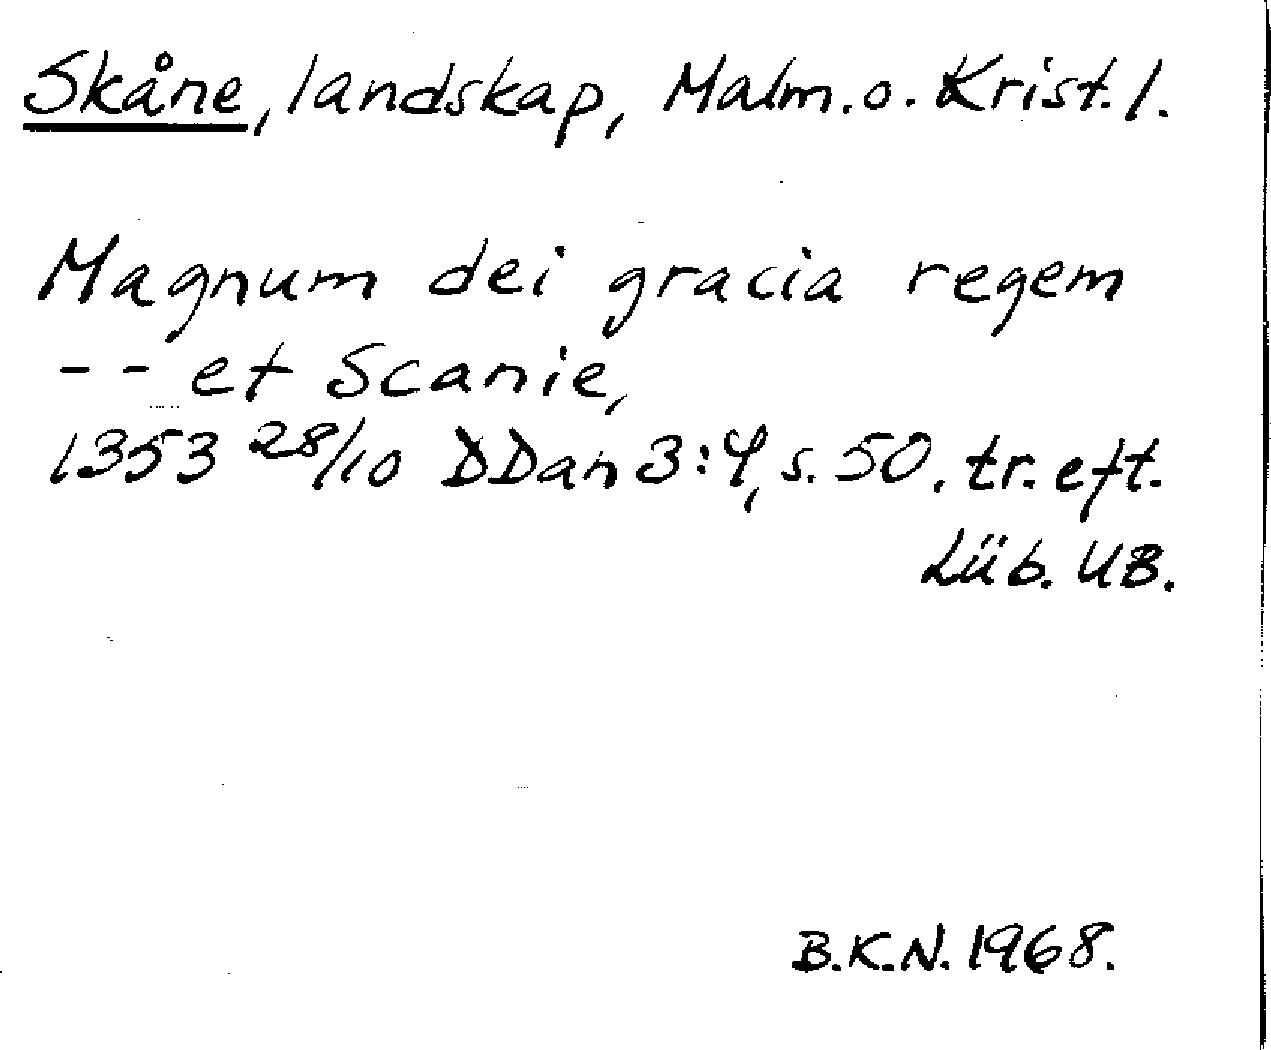 Skåne, landskap, Malm. o. Krist. l.
Magnum dei gracia regem
-- et Scanie,
1353 28/10 DDan 3:4, s. 50. tr. eft.
Lüb. UB.
B.K.N. 1968.